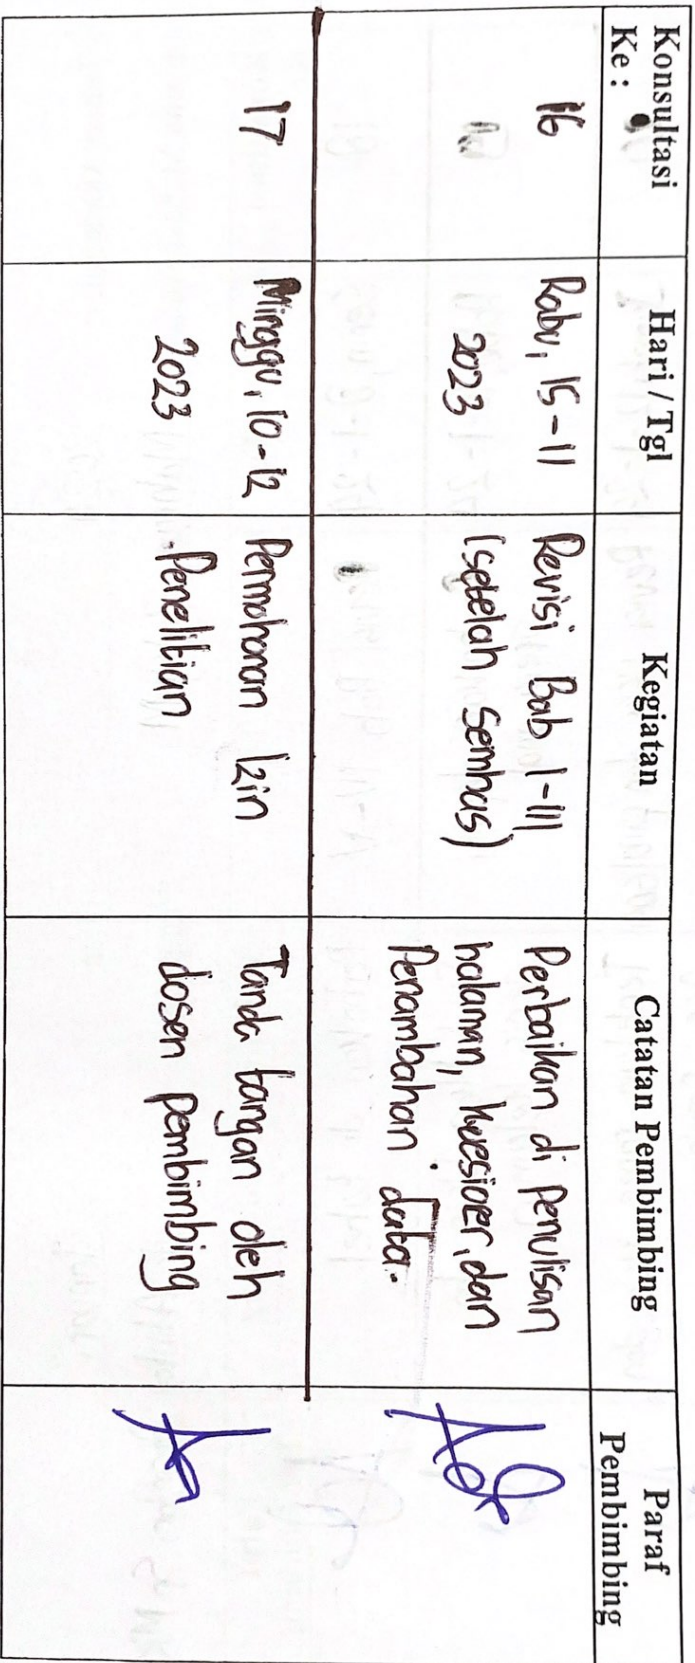 Konsultasi
Ke :
Hari / Tgl
Kegiatan
Catatan Pembimbing
Paraf
Pembimbing
16
Rabu, 15-11
2023
Revisi Bab I-III
(setelah Semhas)
Perbaikan di penulisan
halaman, kuesioer, dan
Penambahan data.
17
Minggu, 10-12
2023
Permohonan Izin
Penelitian
Tanda tangan oleh
dosen pembimbing